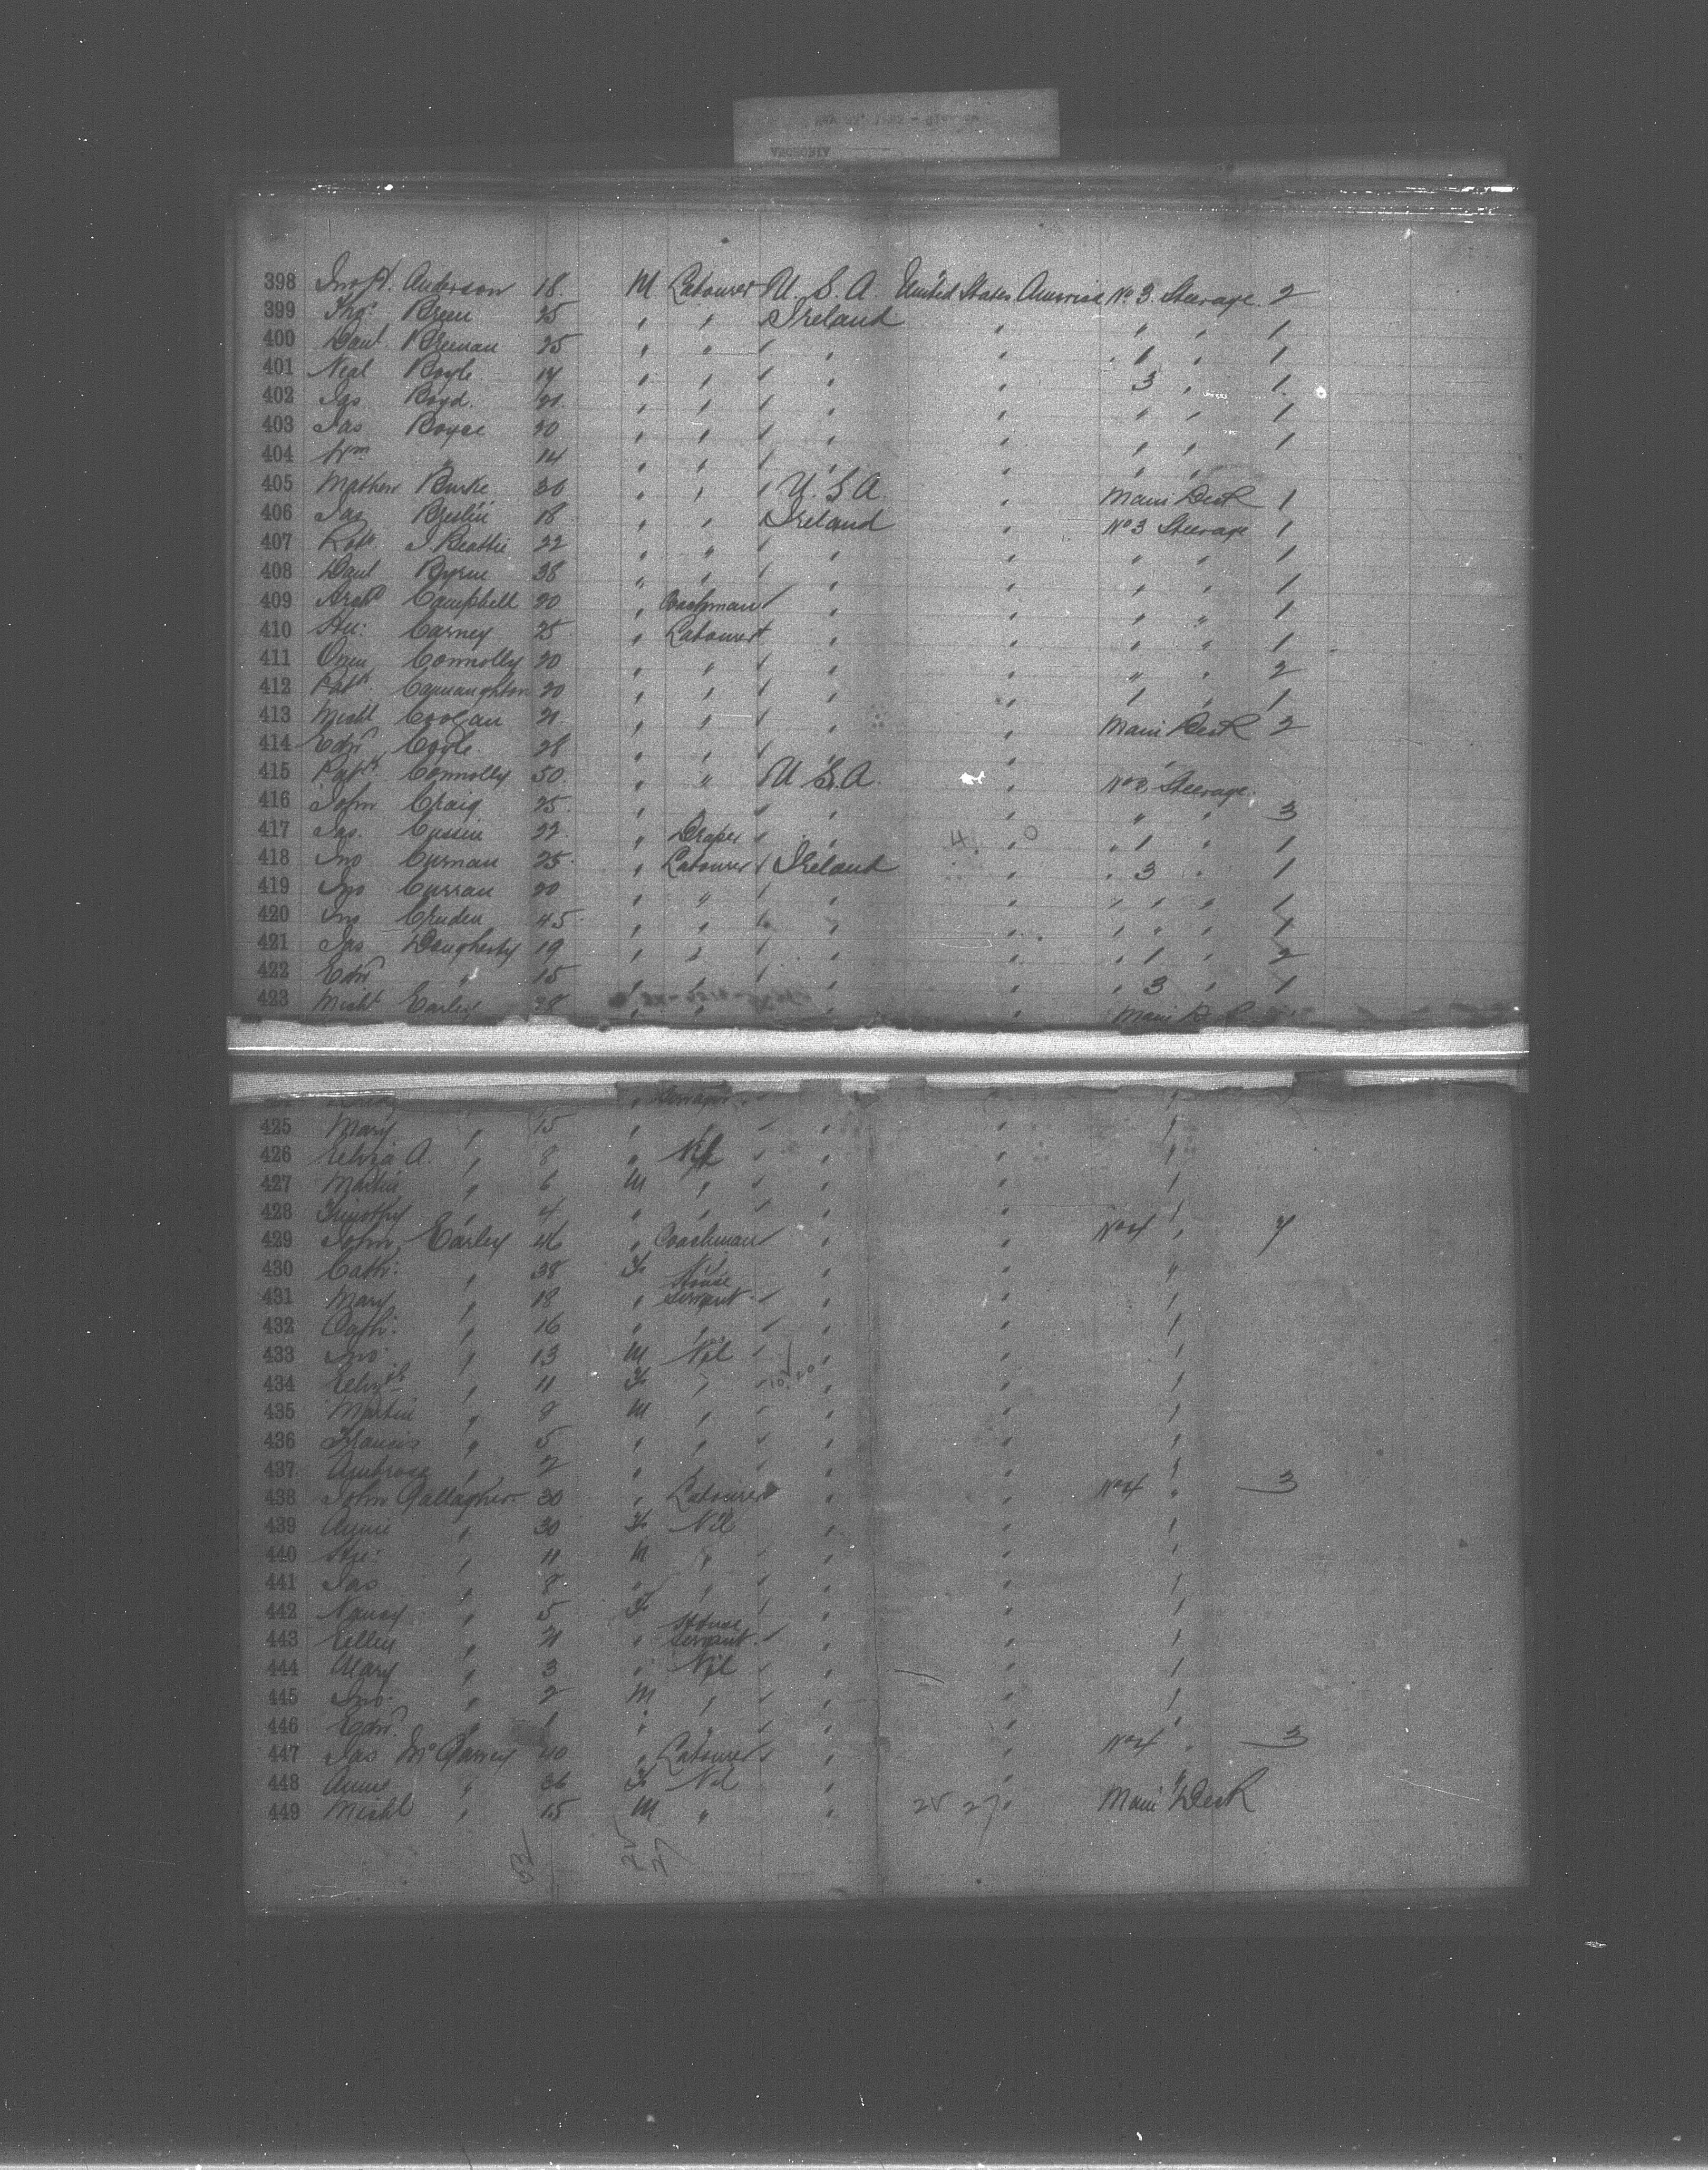 ANCHORIA
398 Jno A. Anderson 18 M Labourer U. S. A. United States America No 3 Steerage 2
399 Thos Breen 25 " " Ireland " " " 1
400 Danl Brennan 25 " " " " " 1 " 1
401 Neal Boyle " " " " 3 " 1
402 Jas Boyd 21 " " " " " " 1
403 Jas Boyce 20 " " " " " " 1
404 Wm " 14 " " " " " "
405 Mathew Burke 30 " " U. S. A " Main Deck 1
406 Jas Breslin 18 " " Ireland " No 3 Steerage 1
407 Robt J Beattie 22 " " " " " " 1
408 Danl Byrne 38 " " " " " " 1
409 Archd Campbell 20 " Coachman " " " " 1
410 Hu: Carney 25 " Labourer " " " " 1
411 Owen Connolly 20 " " " " " " 2
412 Patk Cannaughton 20 " " " " 1 " 1
413 Michl Coogan 21 " " " " Main Deck 2
414 Edwd Coyle 28 " " " " "
415 Patk Connolly 50 " " U. S. A. " No 3 Steerage
416 John Craig 25 " " " " " " 3
417 Jas. Cussin 22 " Draper " " " 1 " 1
418 Jno Curnan 25 " Labourer Ireland " " 3 " 1
419 Jno Curran 20 " " " " " " 1
420 Jno Cruden 45 " " " " " " 1
421 Jas Dougherty 19 " " " " " 1 " 2
422 Edwd " 15 " " " " " 3 " 1
423 Michl Earley 28 " " " " Main
425 Mary " 15 " " " " "
426 Eliza A. " 8 " Nil " " "
427 Martin " 6 M " " " "
428 Timothy " 4 " " " " "
429 John Earley 46 " Coachman " " No 4 " 7
430 Cath: " 38 F " " " "
431 Mary " 18 " House Servant " " "
432 Cath: " 16 " " " " "
433 Jno " 13 M Nil " " "
434 Elizth " 11 F " " " "
435 Martin " 8 M " " " "
436 Francis " 5 " " " " "
437 Ambrose " 2 " " " " "
438 John Gallagher 30 " Labourer " " No 4 " 3
439 Annie " 30 F Nil " " "
440 Hu: " 11 M " " " "
441 Jas " 8 " " " " "
442 Nancy " 5 F " " " "
443 Ellen " 21 " House Servant " " "
444 Mary " 3 " Nil " " "
445 Jno. " 2 M " " " "
446 Edwd. " 1 " " " " "
447 Jas McGarvey 40 " Labourer " " No 4 " 3
448 Annie " 36 F Nil " " "
449 Michl " 15 M " " 25 27 " Main Deck